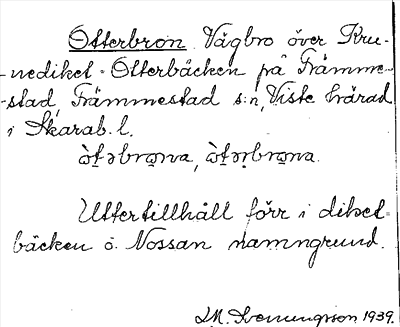 Otterbron Vägbro över Kru-
-nediket - Otterbäcken på Främme-
-stad, Främmestad s:n, Viste härad
i Skarab. l.
ò̀t̠əbro̠na, ò̀t̠əṇbro̠na.
Uttertillhåll förr i diket-
bäcken o. Nossan namngrund.
M. Svenungsson 1939.